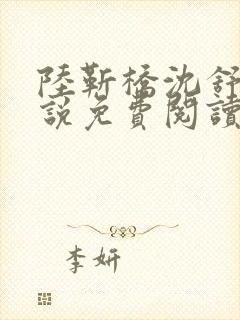 陸靳橋沈舒
說免費閱讀
李妍